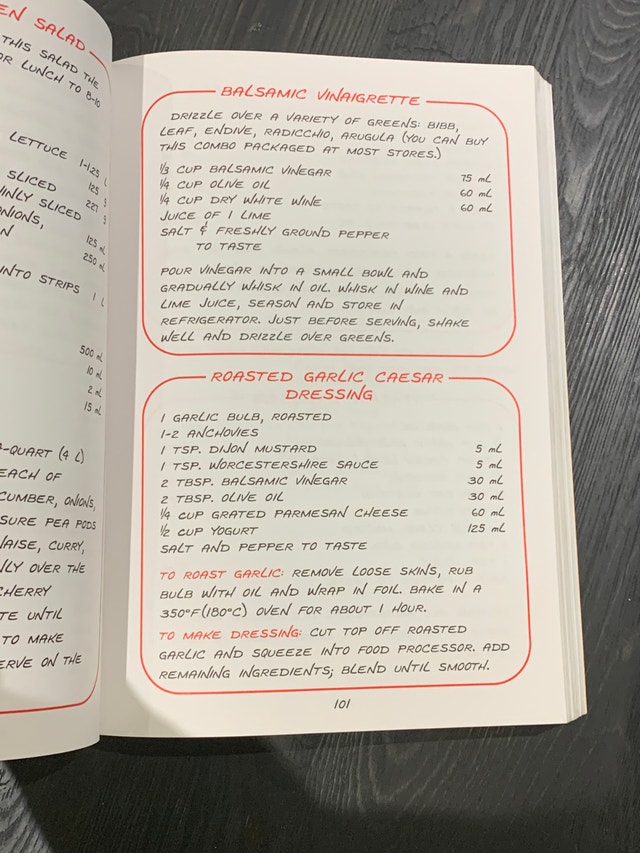 EN SALAD
THIS SALAD THE
OR LUNCH TO 8-10
LETTUCE 1-1.25 L
SLICED 125
INLY SLICED 227
ONIONS,
N 125 mL
250 mL
INTO STRIPS 1 L
500 mL
10 mL
2 mL
15 mL
-QUART (4 L)
EACH OF
CUMBER, ONIONS,
SURE PEA PODS
NAISE, CURRY,
NLY OVER THE
CHERRY
TE UNTIL
TO MAKE
ERVE ON THE
BALSAMIC VINAIGRETTE
DRIZZLE OVER A VARIETY OF GREENS: BIBB,
LEAF, ENDIVE, RADICCHIO, ARUGULA (YOU CAN BUY
THIS COMBO PACKAGED AT MOST STORES.)
⅓ CUP BALSAMIC VINEGAR 75 mL
¼ CUP OLIVE OIL 60 mL
¼ CUP DRY WHITE WINE 60 mL
JUICE OF 1 LIME
SALT & FRESHLY GROUND PEPPER
TO TASTE
POUR VINEGAR INTO A SMALL BOWL AND
GRADUALLY WHISK IN OIL. WHISK IN WINE AND
LIME JUICE, SEASON AND STORE IN
REFRIGERATOR. JUST BEFORE SERVING, SHAKE
WELL AND DRIZZLE OVER GREENS.
ROASTED GARLIC CAESAR
DRESSING
1 GARLIC BULB, ROASTED
1-2 ANCHOVIES
1 TSP. DIJON MUSTARD 5 mL
1 TSP. WORCESTERSHIRE SAUCE 5 mL
2 TBSP. BALSAMIC VINEGAR 30 mL
2 TBSP. OLIVE OIL 30 mL
¼ CUP GRATED PARMESAN CHEESE 60 mL
½ CUP YOGURT 125 mL
SALT AND PEPPER TO TASTE
TO ROAST GARLIC: REMOVE LOOSE SKINS, RUB
BULB WITH OIL AND WRAP IN FOIL. BAKE IN A
350°F (180°C) OVEN FOR ABOUT 1 HOUR.
TO MAKE DRESSING: CUT TOP OFF ROASTED
GARLIC AND SQUEEZE INTO FOOD PROCESSOR. ADD
REMAINING INGREDIENTS; BLEND UNTIL SMOOTH.
101